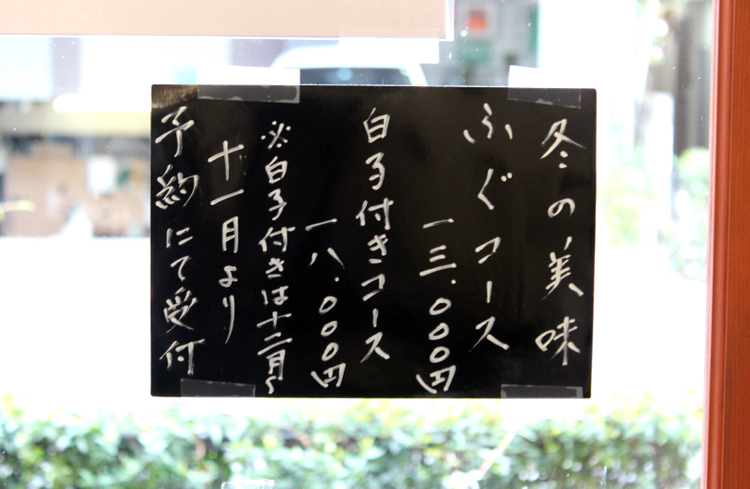 冬の美味
ふぐコース
一三.〇〇〇円
白子付きコース
一八.〇〇〇円
※白子付きは十二月〜
十一月より
予約にて受付